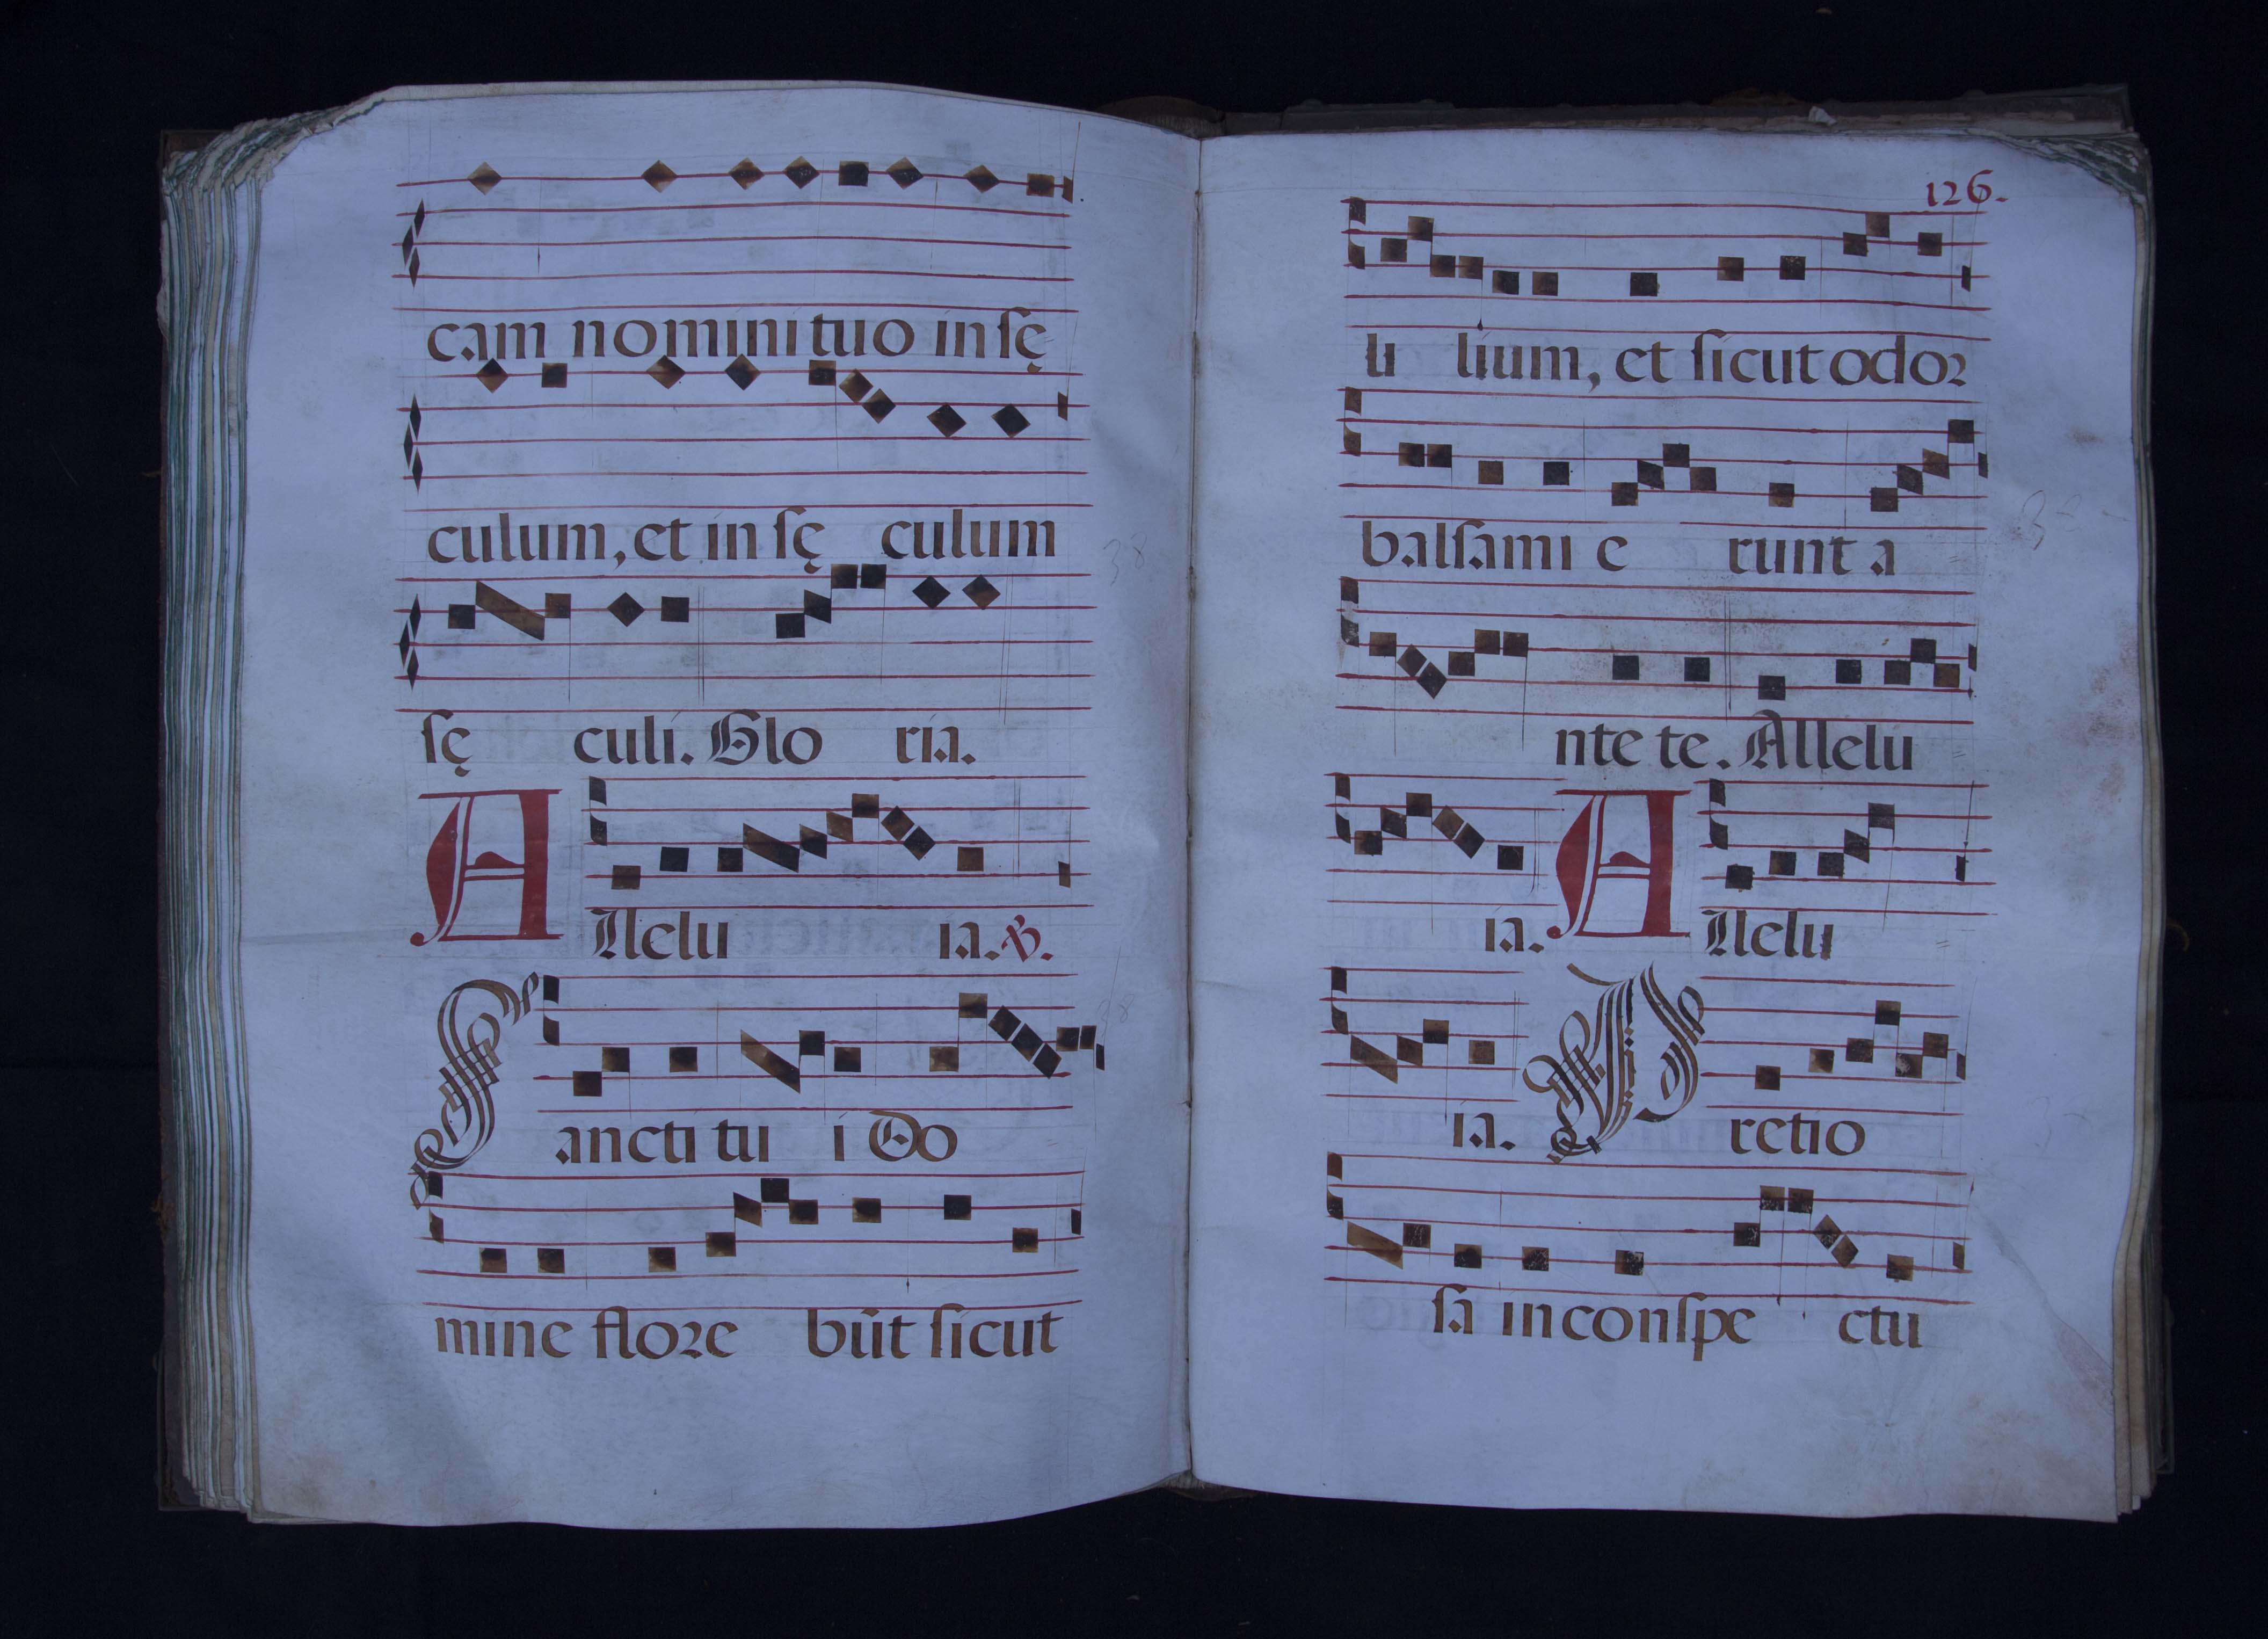 cam nomini tuo in sę
culum, et in sę culum
sę culi. Glo ria.
A llelu ia. ℟.
S ancti tu i Do
mine flore būt sicut
126.
li lium, et sicut odor
balsami e runt a
nte te. Allelu
ia. A llelu
ia. P retio
sa in conspe ctu